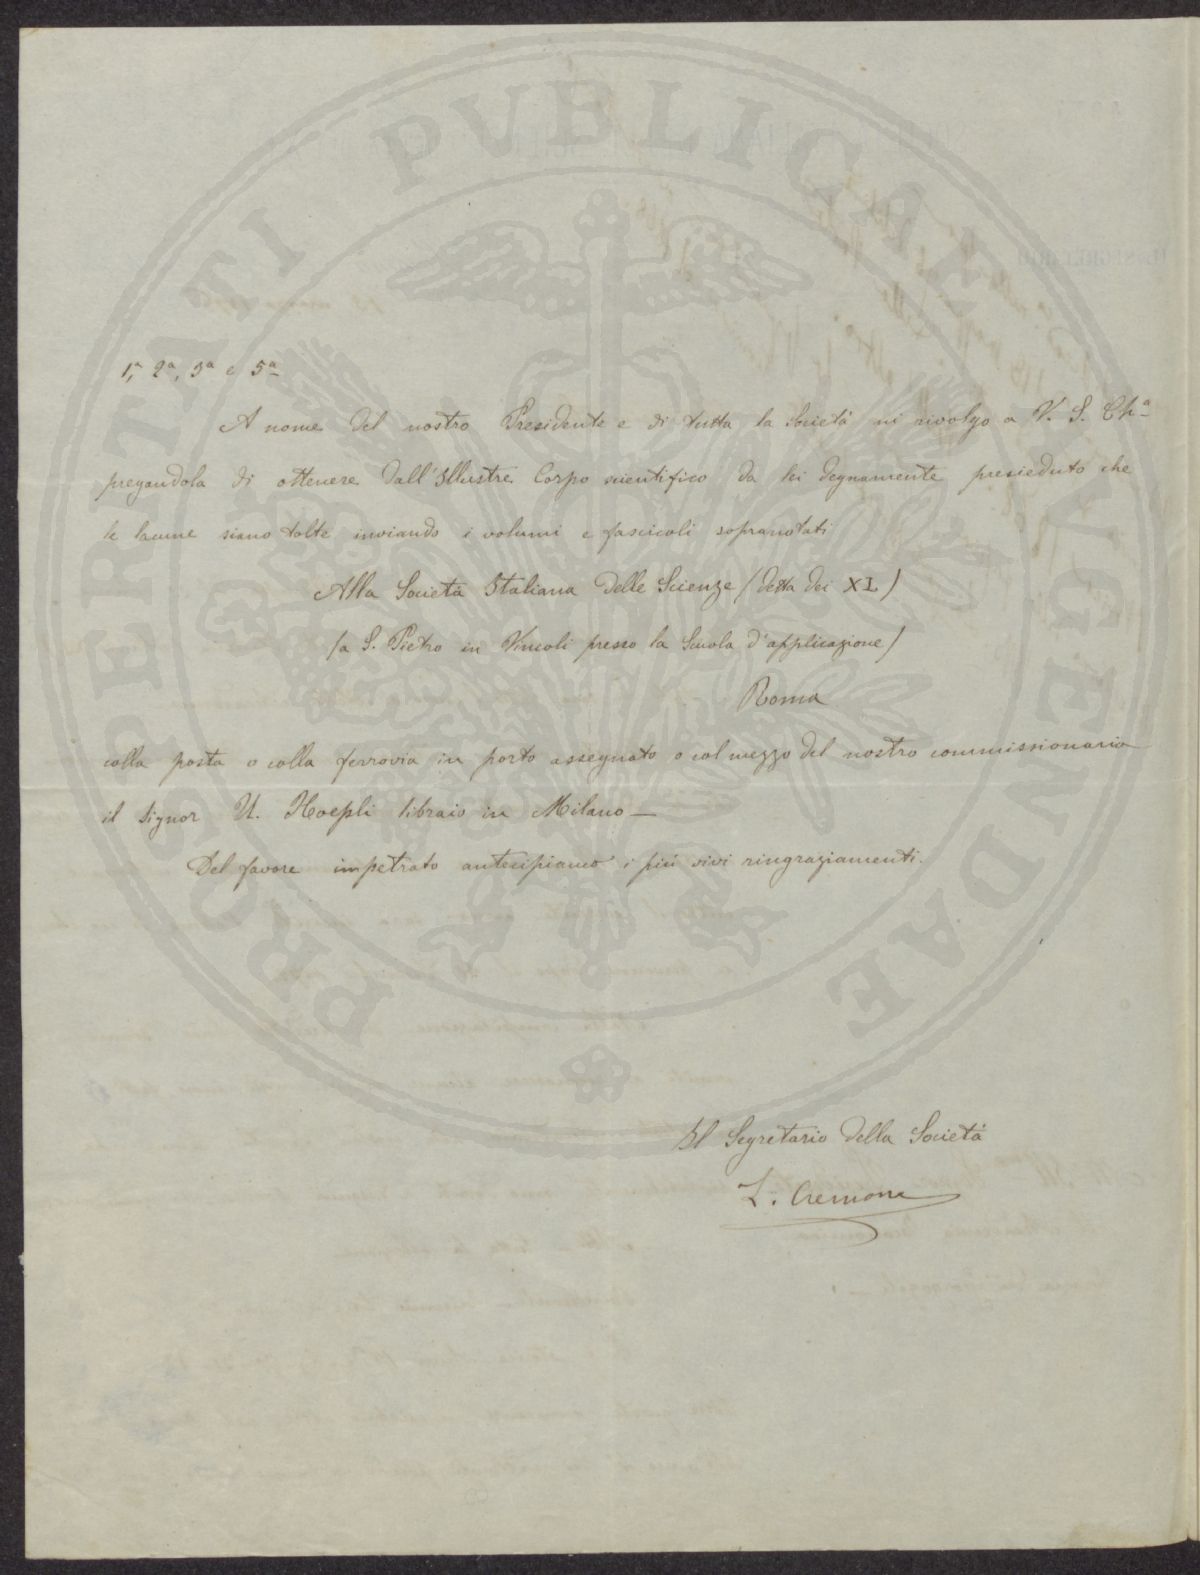 PROSPERITATI PUBLICAE AUGENDAE
1ª, 2ª, 3ª e 5ª
A nome del nostro Presidente e di tutta la Società mi rivolgo a V. S. Chª
pregandola di ottenere dall'Illustre Corpo scientifico da lei degnamente presieduto che
le lacune siano tolte inviando i volumi e fascicoli sopranotati
Alla Società Italiana delle Scienze (detta dei XL)
(a S. Pietro in Vincoli presso la Scuola d'applicazione)
Roma
colla posta o colla ferrovia in porto assegnato o col mezzo del nostro commissionario
il Signor U. Hoepli libraio in Milano—
Del favore impetrato antecipiamo i più vivi ringraziamenti.
Il Segretario della Società
L. Cremona